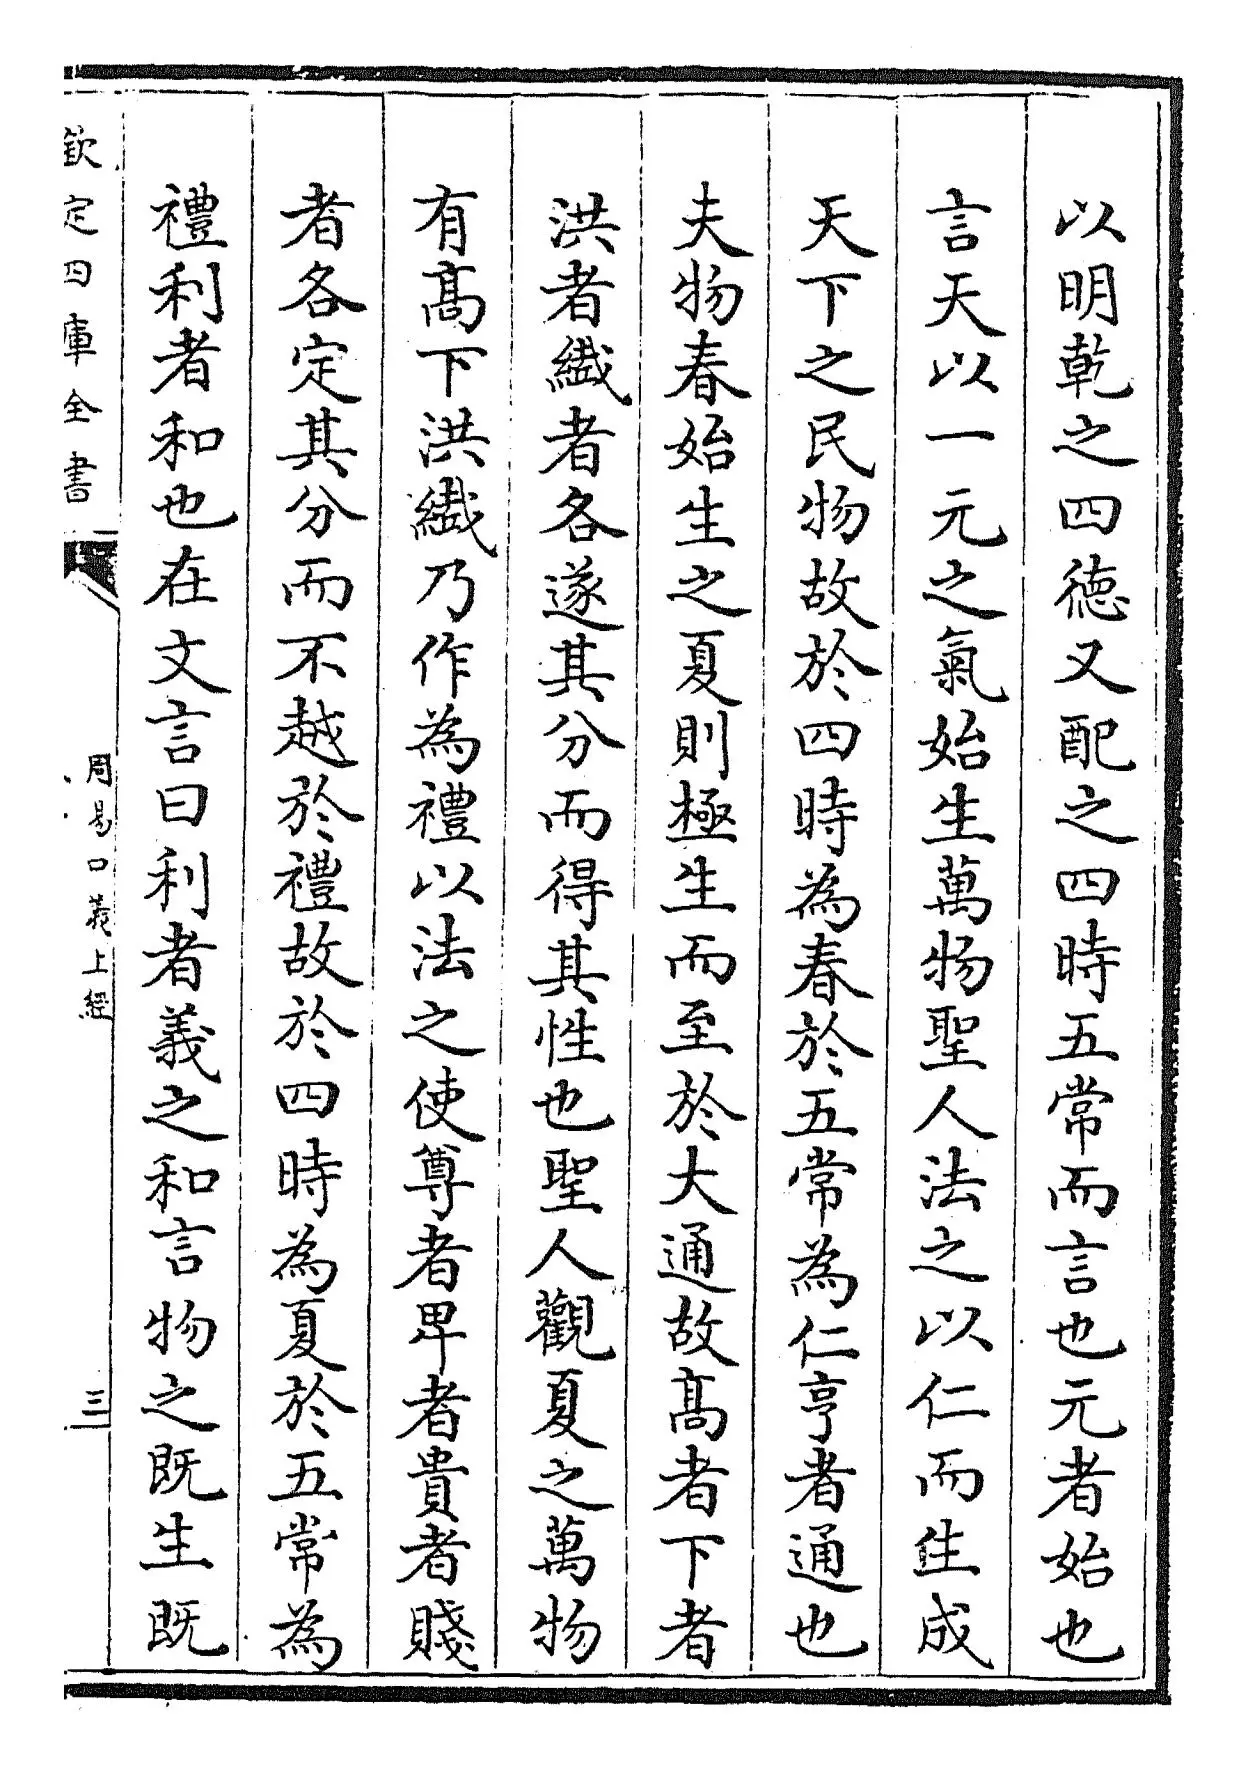 以明乾之四德又配之四時五常而言也元者始也
言天以一元之氣始生萬物聖人法之以仁而生成
天下之民物故於四時為春於五常為仁亨者通也
夫物春始生之夏則極生而至於大通故髙者下者
洪者纎者各遂其分而得其性也聖人觀夏之萬物
有髙下洪纎乃作為禮以法之使尊者卑者貴者賤
者各定其分而不越於禮故於四時為夏於五常為
禮利者和也在文言曰利者義之和言物之既生既
欽定四庫全書
周易口義上經
三